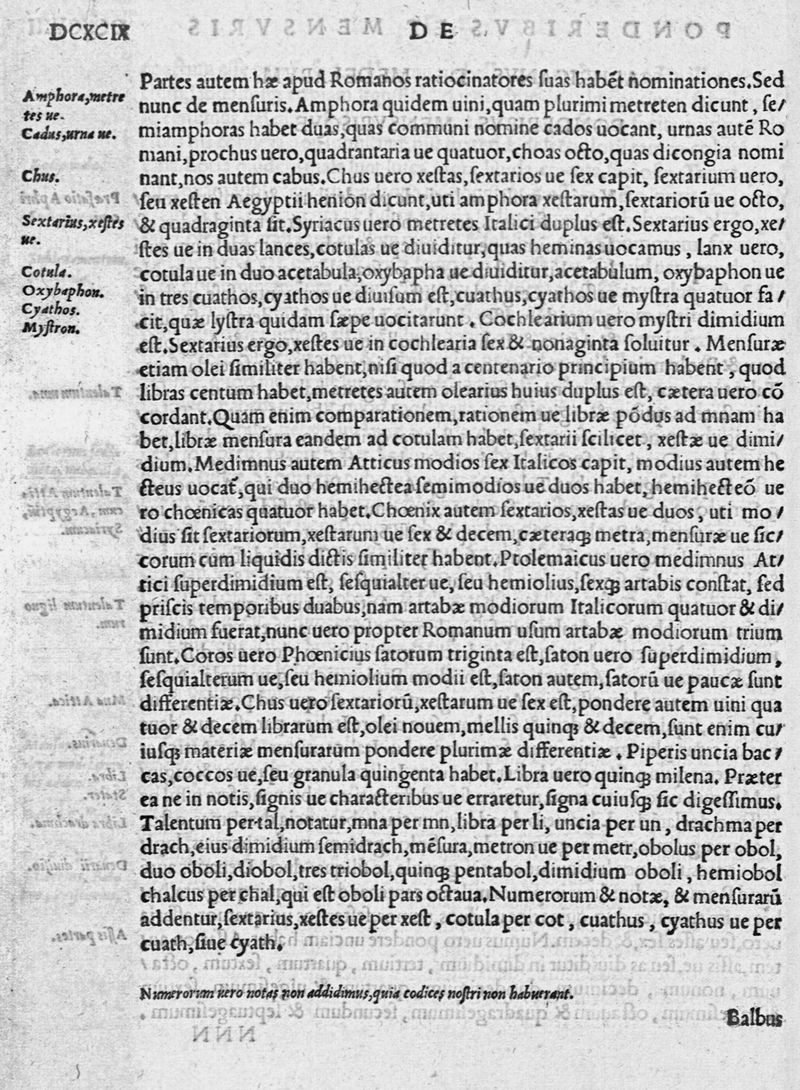 DCXCIX
DE
Partes autem hæ apud Romanos ratiocinatores ſuas habẽt nominationes.Sed
Amphora,metre
tes ue.
nunc de menſuris.Amphora quidem uini,quam plurimi metreten dicunt, ſe/
Cadus,urna ue.
miamphoras habet duas,quas communi nomine cados uocant, urnas autẽ Ro
mani,prochus uero,quadrantaria ue quatuor,choas octo,quas dicongia nomi
Chus.
nant,nos autem cabus.Chus uero xeſtas,ſextarios ue ſex capit, ſextarium uero,
ſeu xeſten Aegyptii henion dicunt,uti amphora xeſtarum,ſextariorũ ue octo,
Sextarius,xeſtes
ue.
& quadraginta ſit.Syriacus uero metretes Italici duplus eſt.Sextarius ergo,xe/
ſtes ue in duas lances,cotulas ue diuiditur,quas heminas uocamus, lanx uero,
Cotula.
cotula ue in duo acetabula,oxybapha ue diuiditur,acetabulum, oxybaphon ue
Oxybaphon.
in tres cuathos,cyathos ue diuiſum eſt,cuathus,cyathos ue myſtra quatuor fa/
Cyathos.
Myſtron.
cit,quæ lyſtra quidam ſæpe uocitarunt. Cochlearium uero myſtri dimidium
eſt.Sextarius ergo,xeſtes ue in cochlearia ſex & nonaginta ſoluitur. Menſuræ
etiam olei ſimiliter habent,niſi quod a centenario principium habent, quod
libras centum habet,metretes autem olearius huius duplus eſt, cætera uero cõ
cordant.Quam enim comparationem,rationem ue libræ põdus ad mnam ha
bet,libræ menſura eandem ad cotulam habet,ſextarii ſcilicet, xeſtæ ue dimi/
dium.Medimnus autem Atticus modios ſex Italicos capit, modius autem he
cteus uocat̃,qui duo hemihectea ſemimodios ue duos habet, hemihecteõ ue
ro chœnicas quatuor habet.Chœnix autem ſextarios,xeſtas ue duos, uti mo/
dius ſit ſextariorum,xeſtarum ue ſex & decem,cæteraꝗ metra,menſuræ ue ſic/
corum cum liquidis dictis ſimiliter habent.Ptolemaicus uero medimnus At/
tici ſuperdimidium eſt, ſeſquialter ue, ſeu hemiolius,ſexꝗ artabis conſtat, ſed
priſcis temporibus duabus,nam artabæ modiorum Italicorum quatuor & di/
midium fuerat,nunc uero propter Romanum uſum artabæ modiorum trium
ſunt.Coros uero Phœnicius ſatorum triginta eſt,ſaton uero ſuperdimidium,
ſeſquialterum ue,ſeu hemiolium modii eſt,ſaton autem,ſatorũ ue paucæ ſunt
differentiæ.Chus uero ſextariorũ,xeſtarum ue ſex eſt,pondere autem uini qua
tuor & decem librarum eſt,olei nouem,mellis quinꝗ & decem,ſunt enim cu/
iuſꝗ materiæ menſurarum pondere plurimæ differentiæ. Piperis uncia bac/
cas,coccos ue,ſeu granula quingenta habet.Libra uero quinꝗ milena. Præter
ea ne in notis,ſignis ue characteribus ue erraretur,ſigna cuiuſꝗ ſic digeſſimus.
Talentum per tal,notatur,mna per mn, libra per li, uncia per un, drachma per
drach,eius dimidium ſemidrach,mẽſura,metron ue per metr,obolus per obol,
duo oboli,diobol,tres triobol,quinꝗ pentabol,dimidium oboli, hemiobol
chalcus per chal,qui eſt oboli pars octaua.Numerorum & notæ, & menſurarũ
addentur,ſextarius,xeſtes ue per xeſt, cotula per cot, cuathus, cyathus ue per
cuath,ſiue cyath.
Numerorum uero notas non addidimus,quia codices noſtri non habuerant.
Balbus